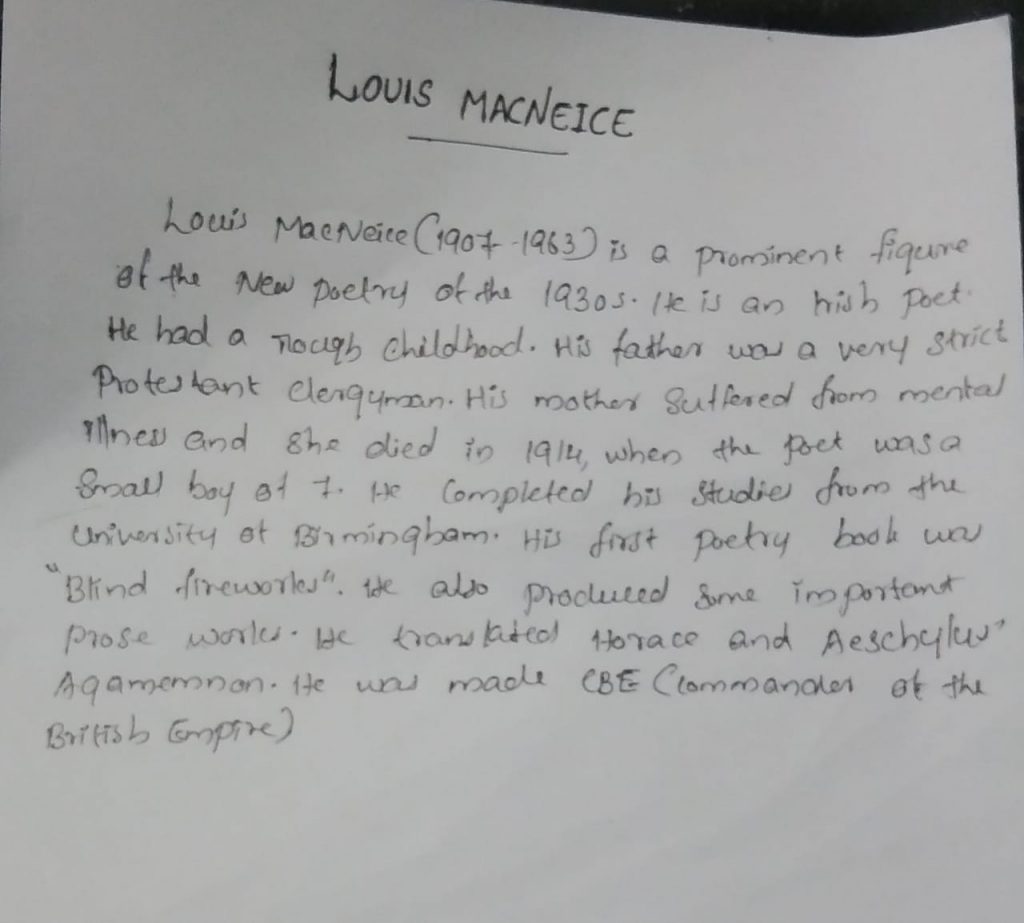 LOUIS MACNEICE
Louis MacNeice (1907-1963) is a prominent figure
of the New poetry of the 1930s. He is an Irish poet.
He had a rough childhood. His father was a very strict
Protestant clergyman. His mother suffered from mental
illness and she died in 1914, when the poet was a
small boy of 7. He completed his studies from the
University of Birmingham. His first poetry book was
"Blind fireworks". He also produced some important
prose works. He translated Horace and Aeschylus'
Agamemnon. He was made CBE (Commander of the
British Empire)